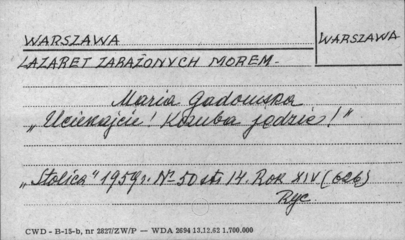 WARSZAWA
WARSZAWA
LAZARET ZARAŻONYCH MOREM.
Maria Gadomska
„Uciekajcie! Kozuba jedzie!"
„Stolica" 1959r. Nº 50 str 14. Rok XIV (626)
Ryc.
CWD - B-15-b, nr 2827/ZW/P — WDA 2694 13.12.62 1.700.000